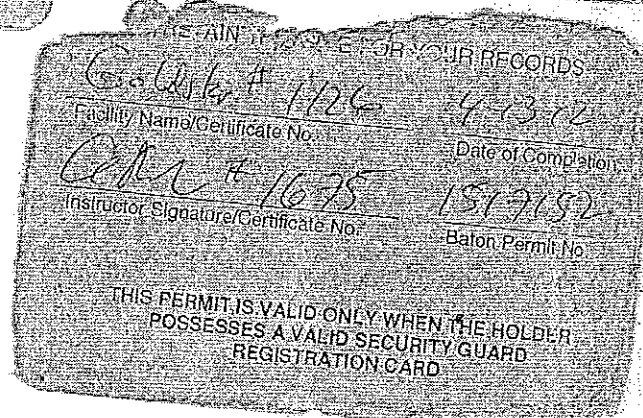 FOR YOUR RECORDS
# 1126 4-13-12
Facility Name/Certificate No. Date of Completion
# 1675 1517152
Instructor Signature/Certificate No. Baton Permit No
THIS PERMIT IS VALID ONLY WHEN THE HOLDER
POSSESSES A VALID SECURITY GUARD
REGISTRATION CARD